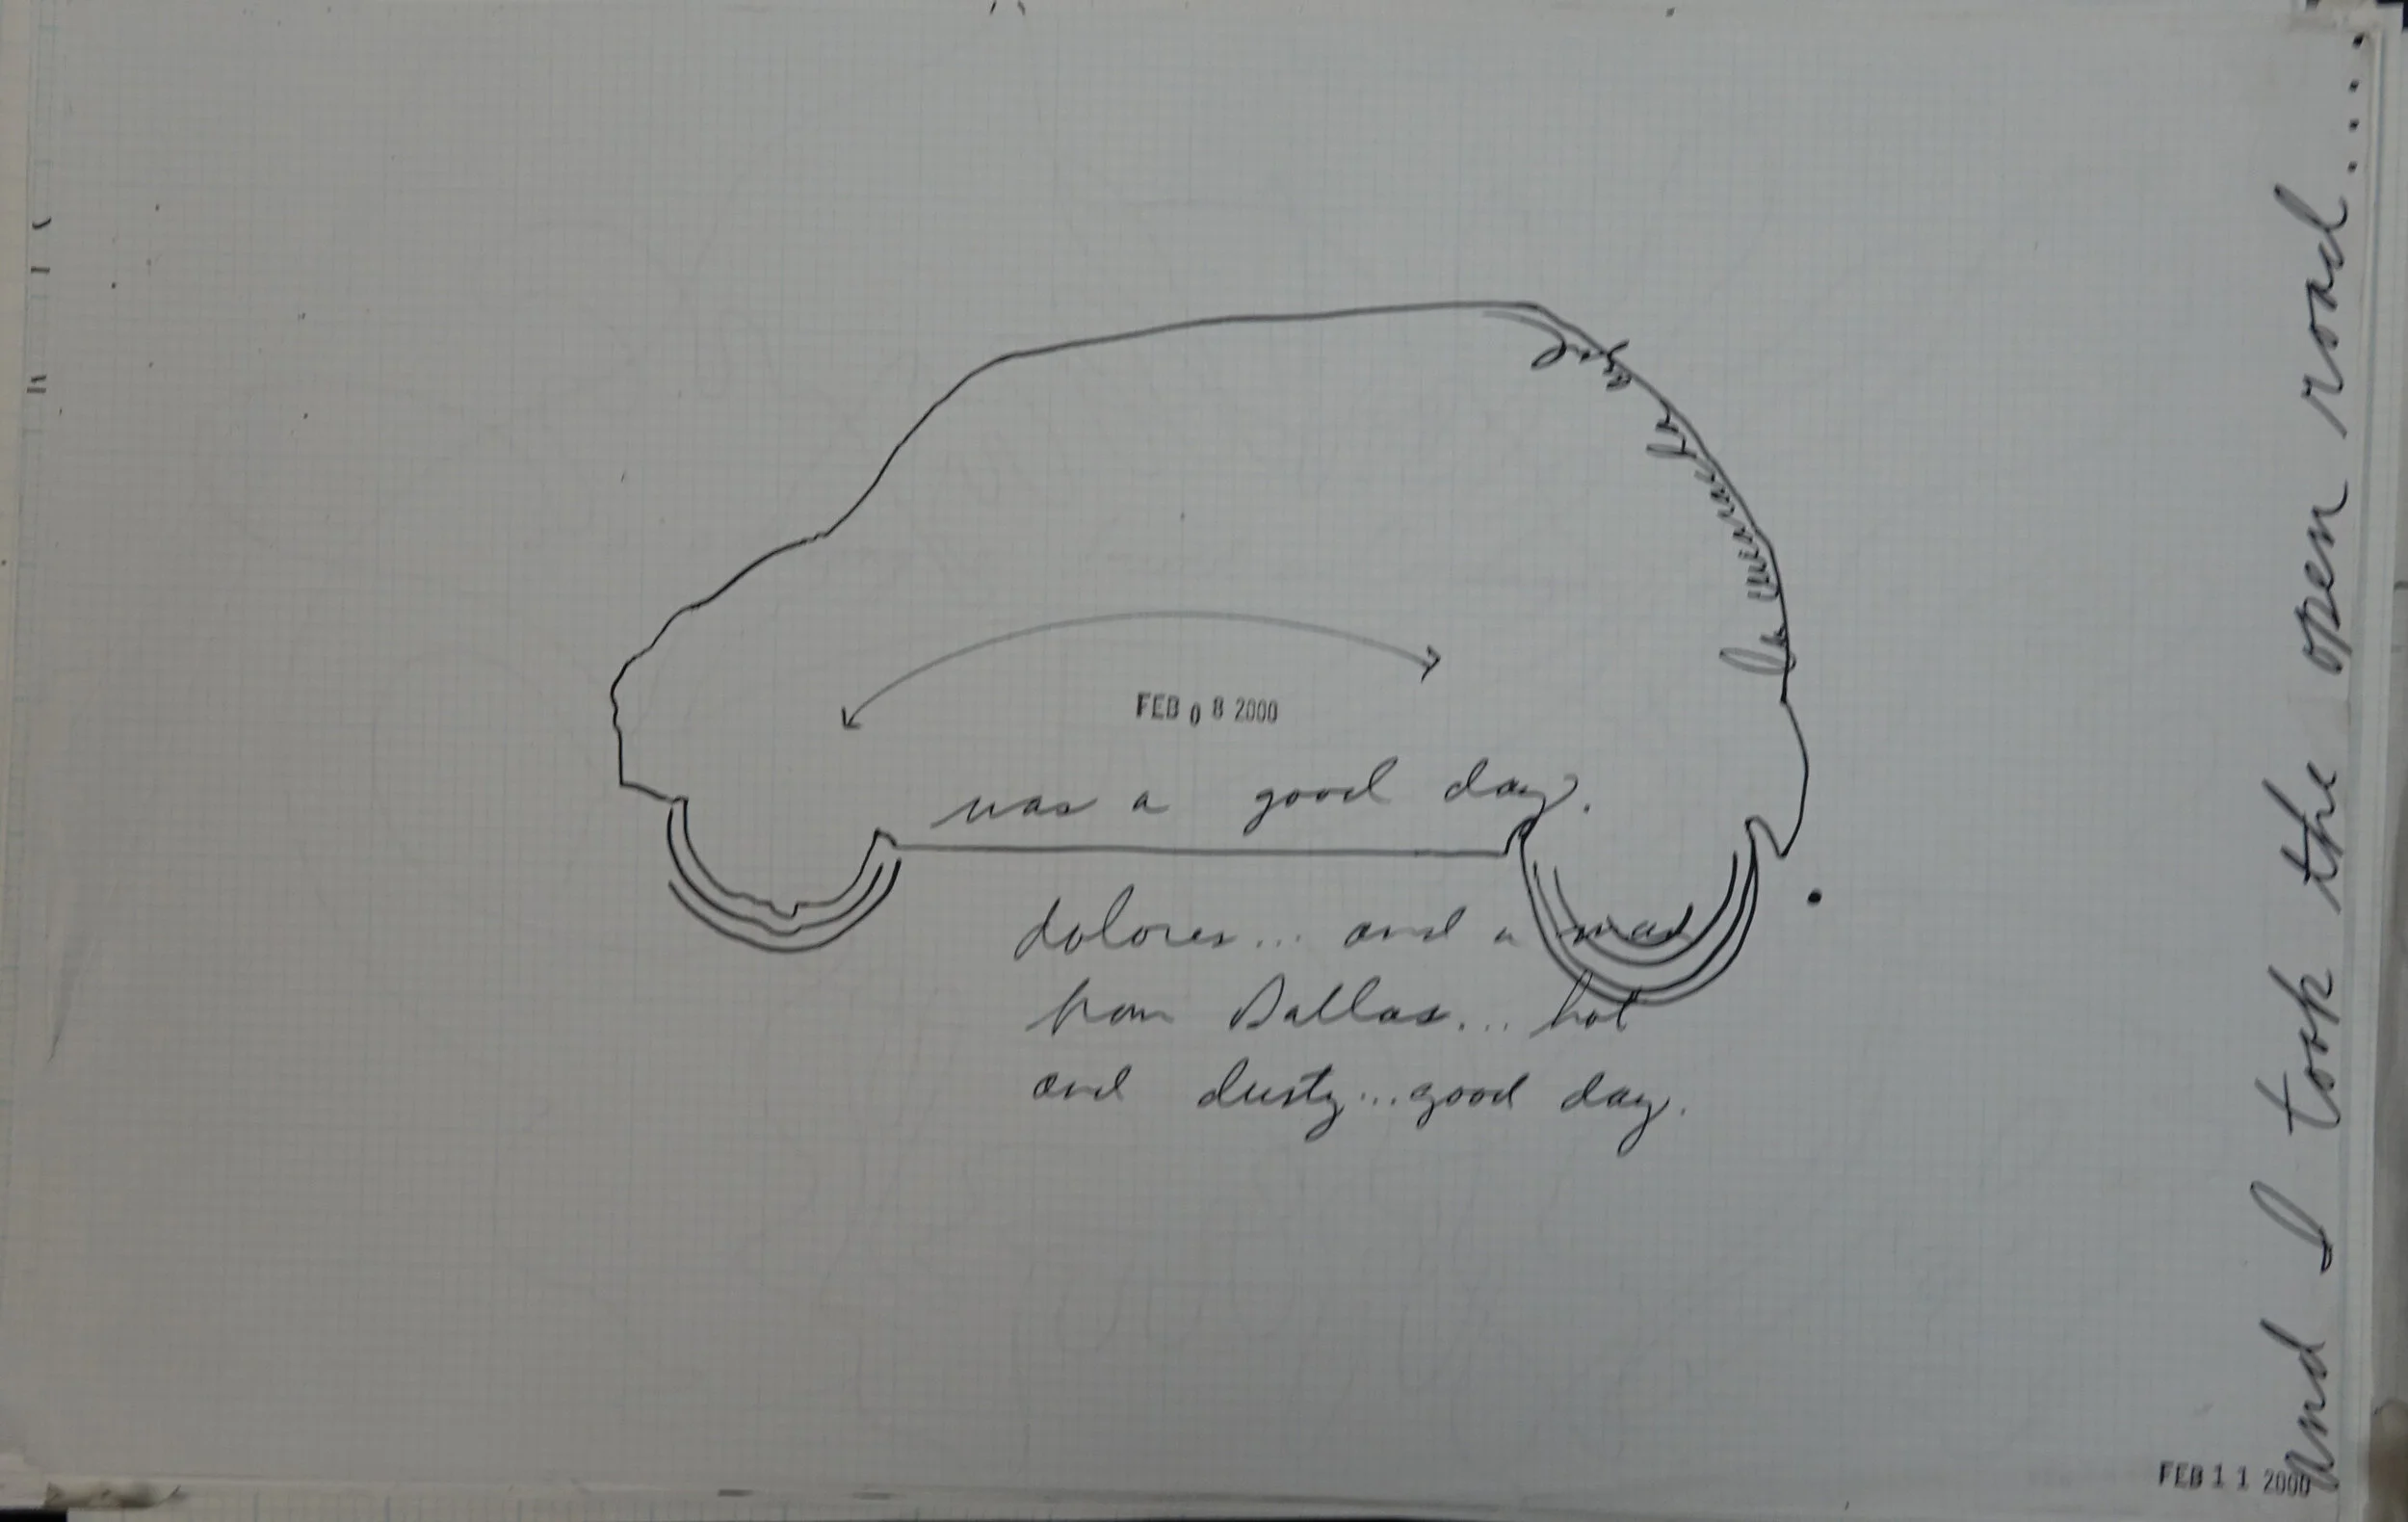 FEB 08 2000
was a good day.
dolores... and a man
from Dallas... hot
and dusty...good day.
and I took the open road.....
FEB 11 2000